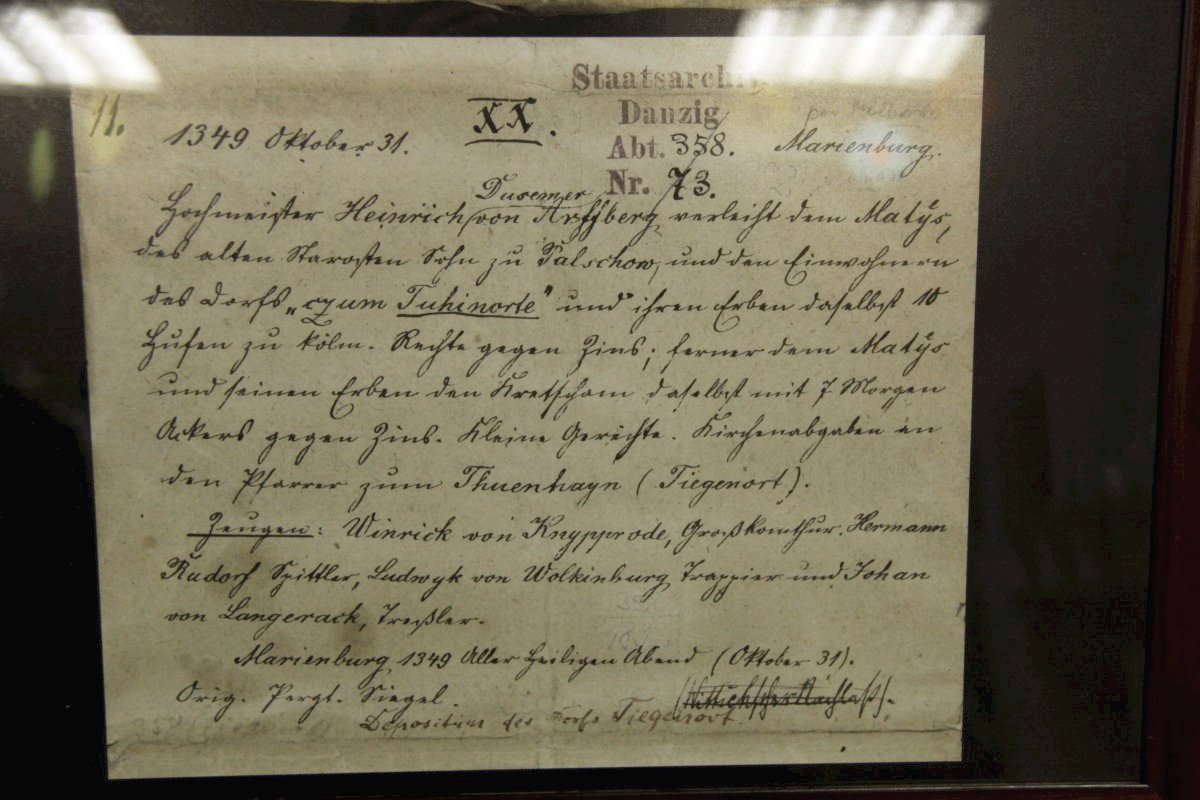 11.
XX.
Staatsarchiv
Danzig
Abt. 358.
Nr. 73.
1349 Oktober 31.
Marienburg.
Dusemer
Hochmeister Heinrich von Arffberg verleiht dem Matÿs,
des alten Starosten Sohn zu Palschow, und den Einwohnern
des Dorfs „czum Tuhinorte" und ihren Erben daselbst 10
Hufen zu kölm. Rechte gegen Zins; ferner dem Matÿs
und seinen Erben den Kretscham daselbst mit 7 Morgen
Ackers gegen Zins. Kleine Gerichte. Kirchenabgaben an
den Pfarrer zum Thuenhayn (Tiegenort).
Zeugen: Winrick von Knypprode, Großkomthur. Hermann
Kudorf Spittler, Ludwyk von Wolkinburg Trappier und Johan
von Langerack, Treßler.
Marienburg 1349 Aller Heiligen Abend (Oktober 31).
Orig. Pergt. Siegel.
Depositum des Dorfs Tiegenort.